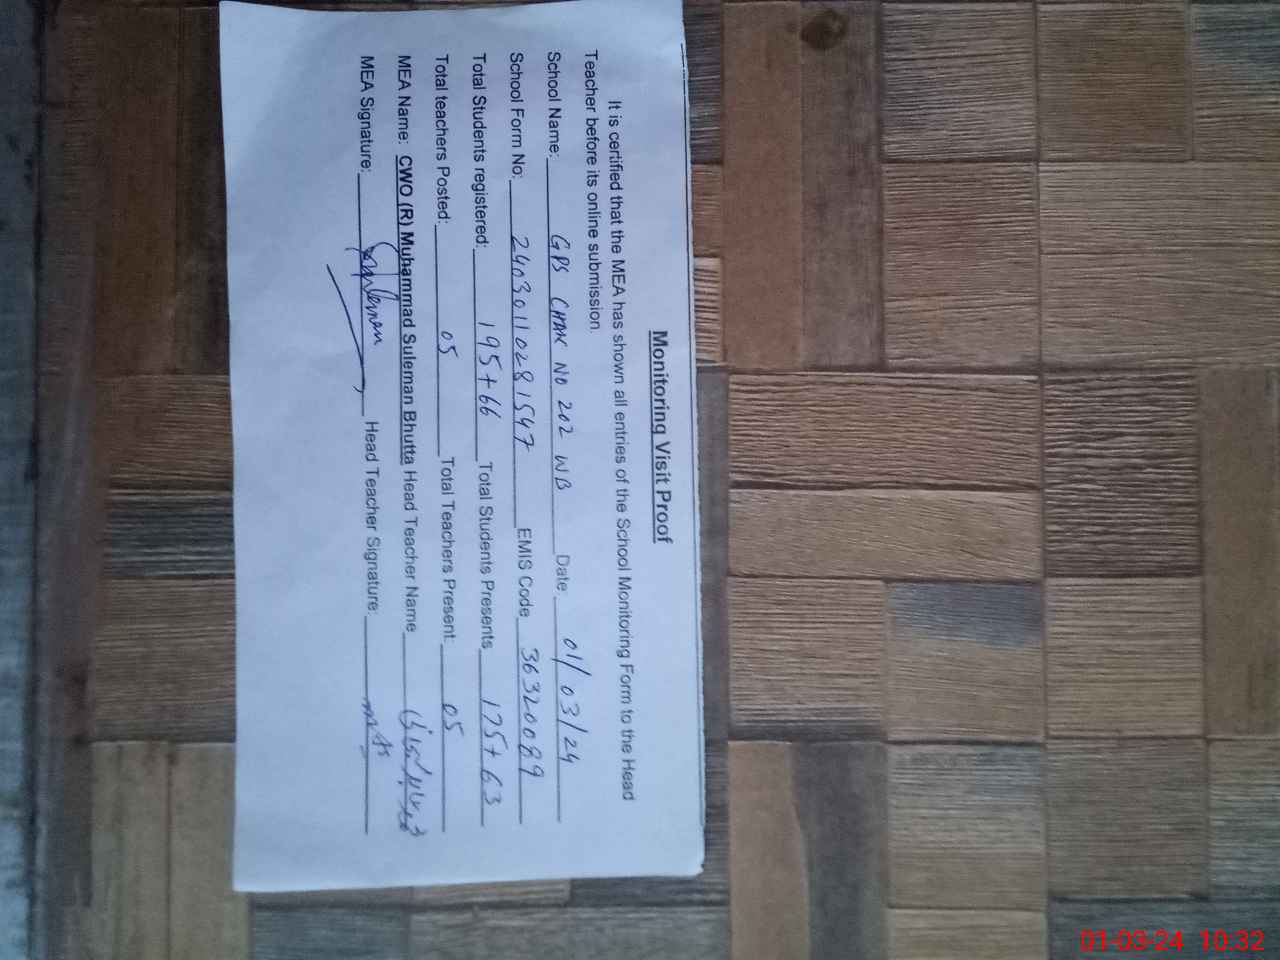 Monitoring Visit Proof
It is certified that the MEA has shown all entries of the School Monitoring Form to the Head
Teacher before its online submission.
School Name: GPS CHAK NO 202 WB Date: 01/03/24
School Form No: 24030110281547 EMIS Code 36320089
Total Students registered: 195+66 Total Students Presents 175+63
Total teachers Posted: 05 Total Teachers Present: 05
MEA Name: CWO (R) Muhammad Suleman Bhutta Head Teacher Name
MEA Signature: Suleman Head Teacher Signature:
01-03-24 10:32